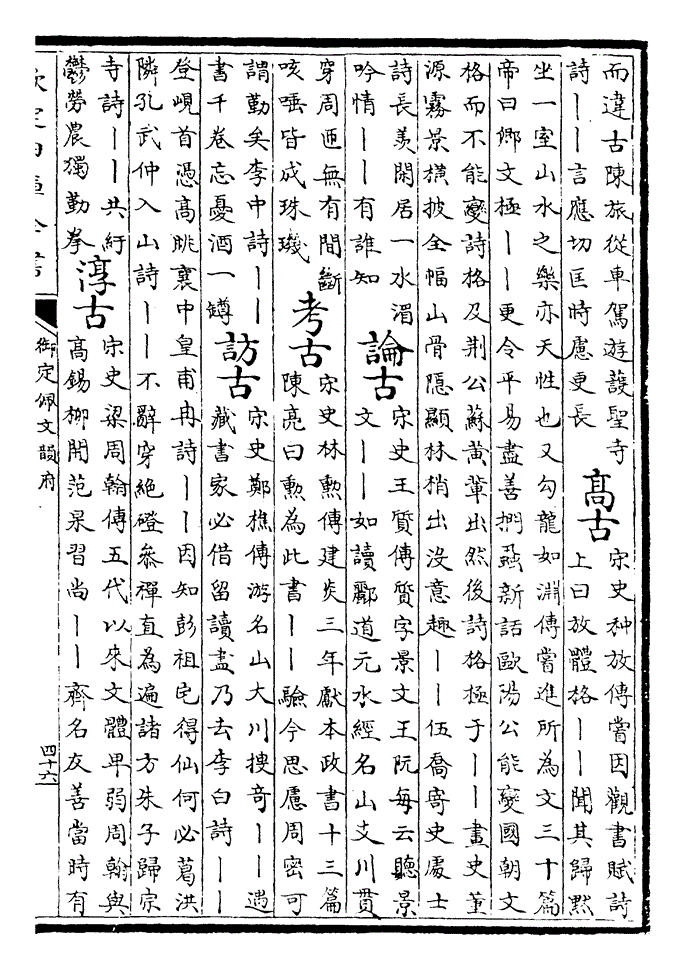 而違古陳旅從車駕遊䕶聖寺
詩丨丨言應切匡時慮更長
髙古
宋史种放傳嘗因觀書賦詩
上曰放體格丨丨聞其歸黙
坐一室山水之樂亦天性也又勾龍如淵傳嘗進所為文三十篇
帝曰卿文極丨丨更令平易盡善捫蝨新話歐陽公能變國朝文
格而不能變詩格及荆公蘇黄輩出然後詩格極于丨丨畫史董
源霧景横披全幅山骨隠顯林梢出沒意趣丨丨伍喬寄史處士
詩長羨閑居一水湄
吟情丨丨有誰知
論古
宋史王質傳質字景文王阮每云聽景
文丨丨如讀酈道元水經名山支川貫
穿周匝無有間斷
咳唾皆成珠璣
考古
宋史林勲傳建炎三年獻本政書十三篇
陳亮曰勲為此書丨丨驗今思慮周密可
謂勤矣李中詩丨丨
書千卷忘憂酒一罇
訪古
宋史鄭樵傳游名山大川搜竒丨丨遇
藏書家必借留讀盡乃去李白詩丨丨
登峴首憑髙眺襄中皇甫冉詩丨丨因知彭祖宅得仙何必葛洪
隣孔武仲入山詩丨丨不辭穿絶磴叅禪直為遍諸方朱子歸宗
寺詩丨丨共紆
鬱勞農獨勤拳
淳古
宋史梁周翰傳五代以來文體卑弱周翰與
髙錫柳開范杲習尚丨丨齊名友善當時有
欽定四庫全書
御定佩文韻府
四十六